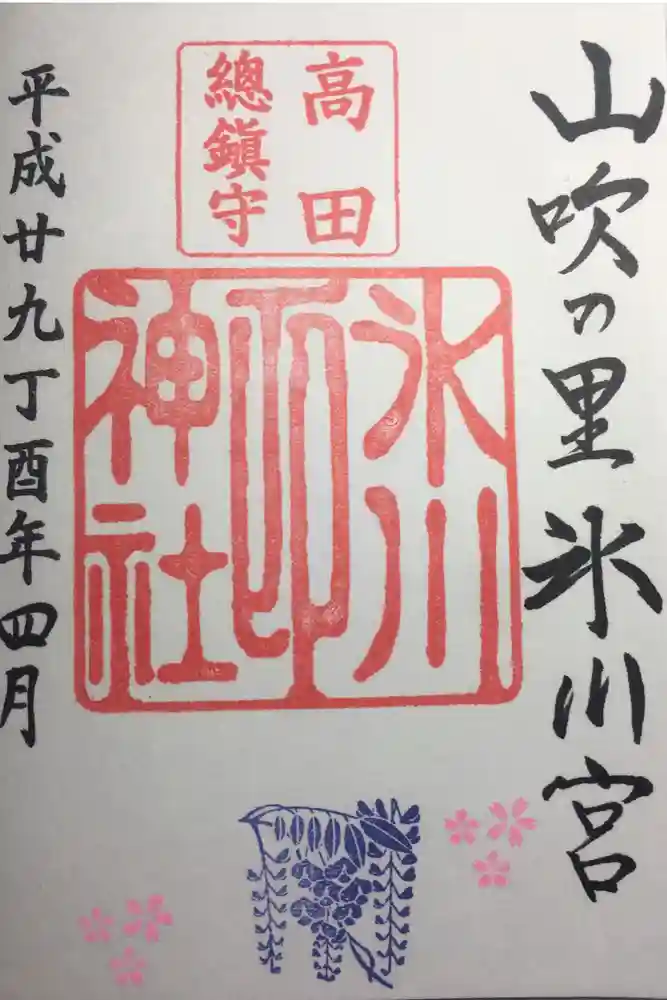 山吹の里氷川宮
高田
總鎮守
氷川
神社
平成廿九丁酉年四月